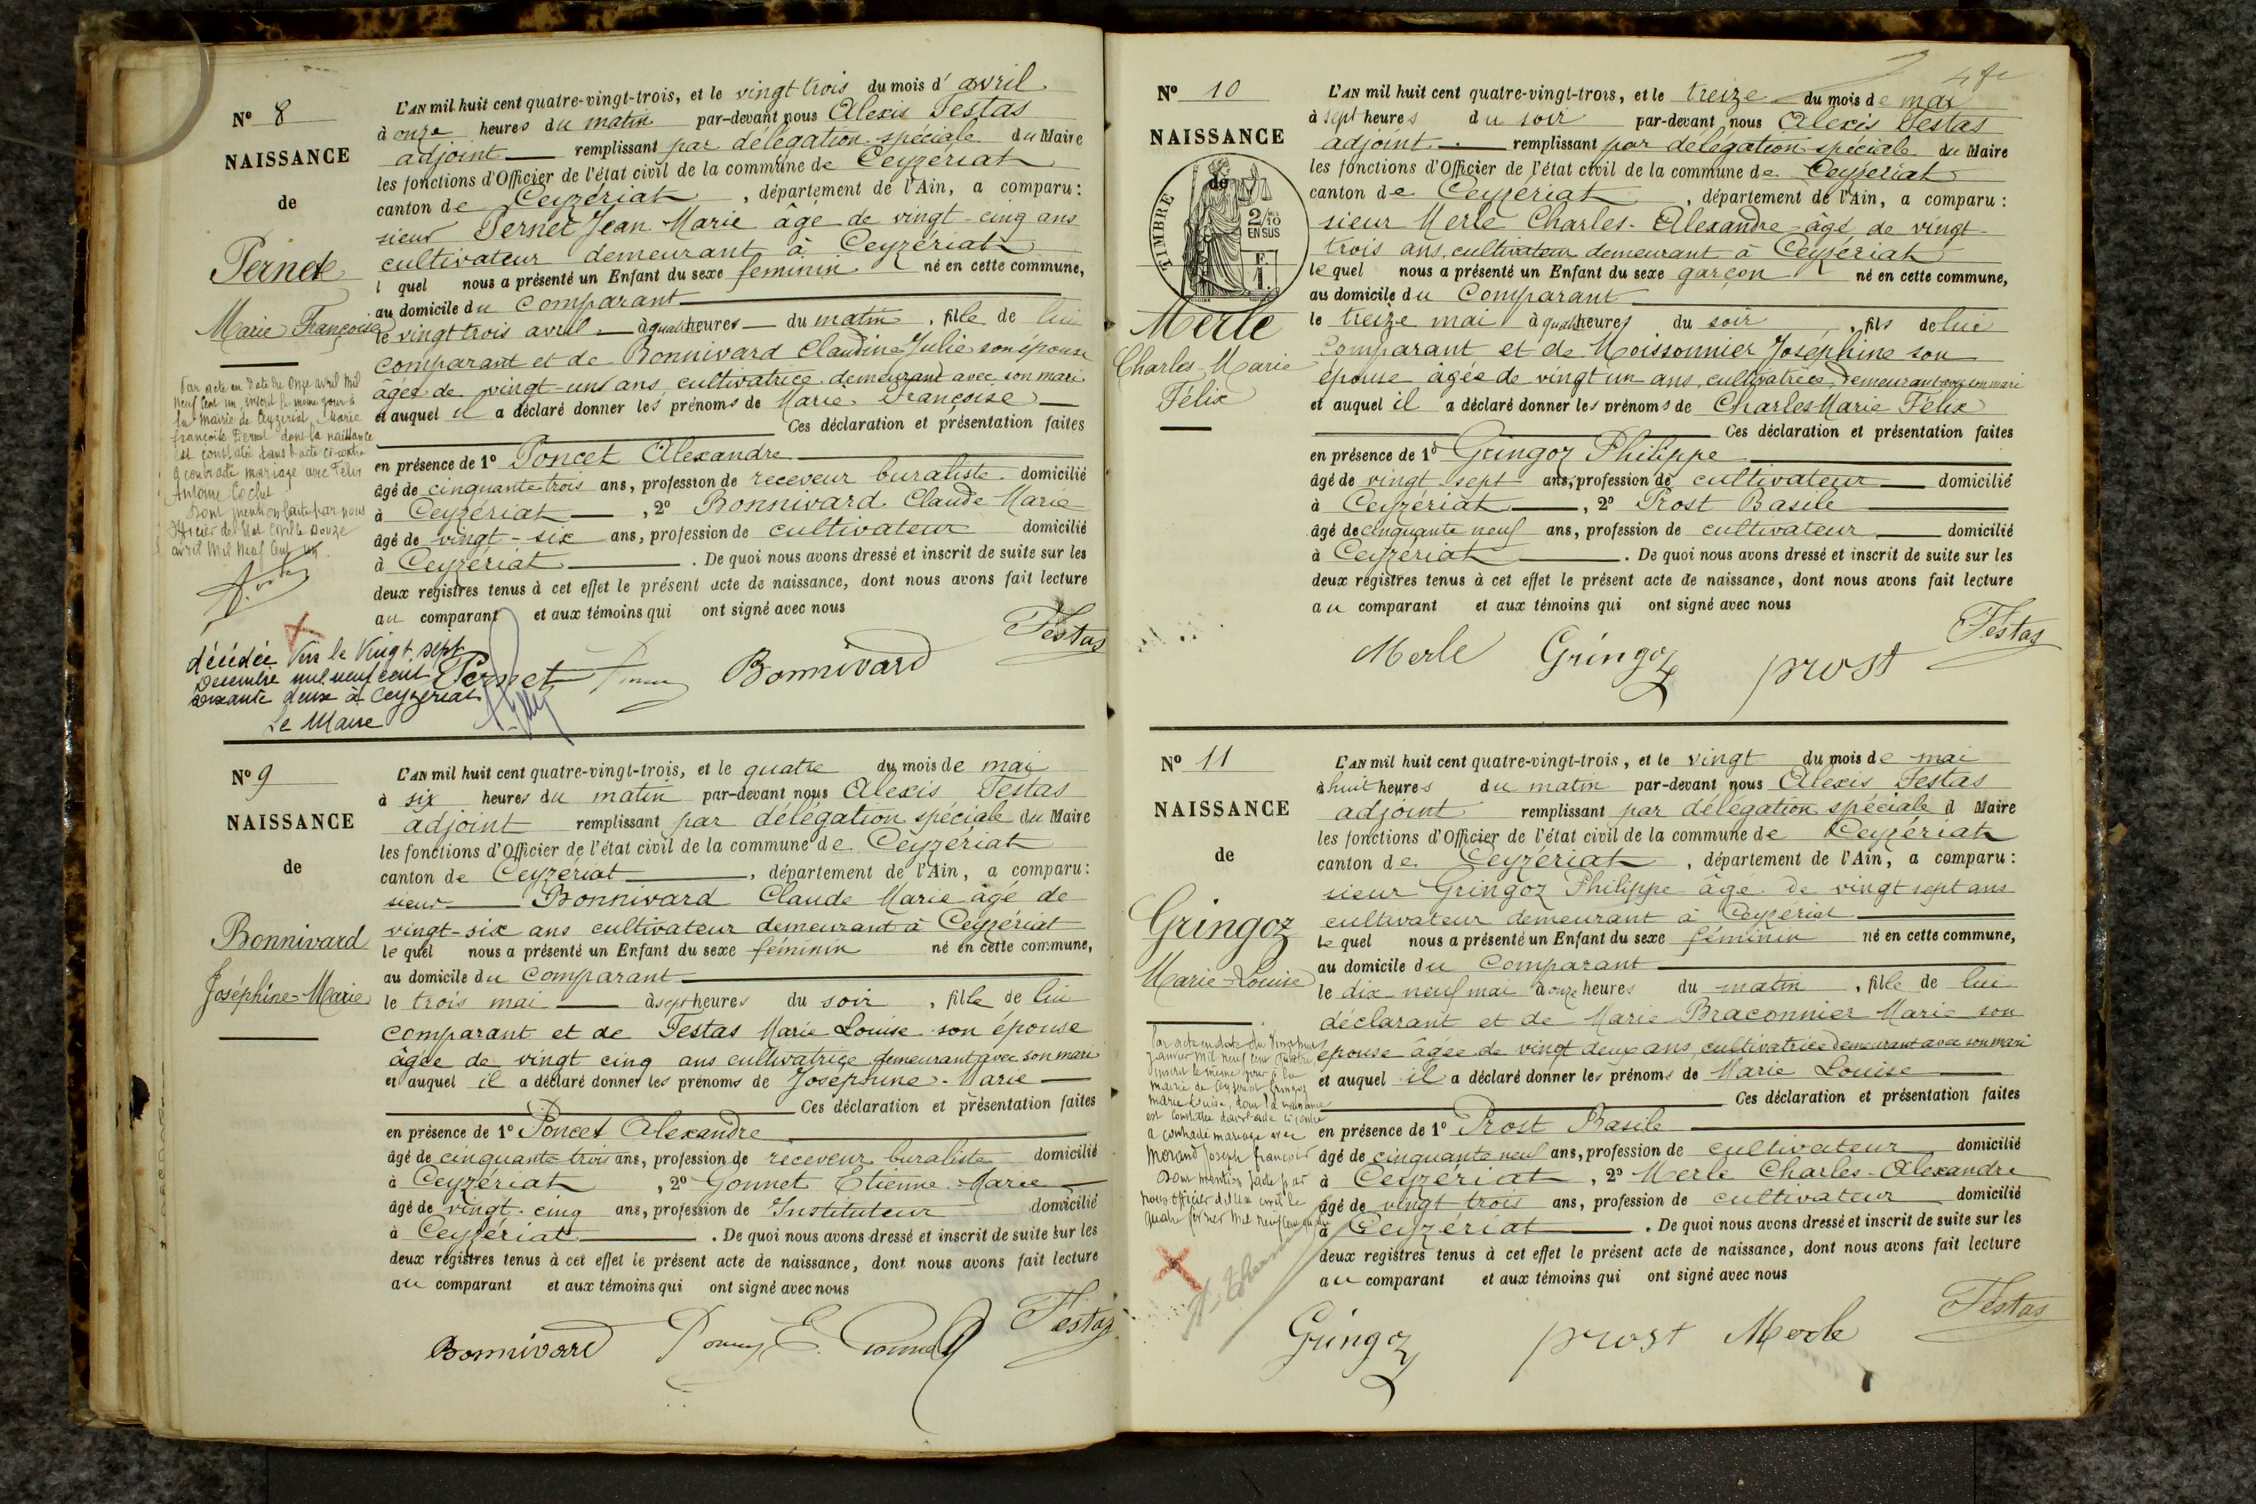 Nº 8
NAISSANCE
de
Pernet
Marie Françoise
Par acte en date du onze avril mil
neuf cent un, inscrit le même jour à
la mairie de Ceyzériat, Marie
Françoise Pernet dont la naissance
est constatée dans l'acte ci-contre
a contracté mariage avec Félix
Antoine Cochet
Dont mention faite par nous
Officier de l'état civil le douze
avril mil neuf cent un.
décédée le vingt sept
Décembre mil neuf cent
soixante deux à Ceyzériat
Le Maire
L'AN mil huit cent quatre-vingt-trois, et le vingt trois du mois d'avril
à onze heures du matin par-devant nous Alexis Festas
adjoint remplissant par délégation spéciale du Maire
les fonctions d'Officier de l'état civil de la commune de Ceyzériat
canton de Ceyzériat, département de l'Ain, a comparu:
sieur Pernet Jean Marie âgé de vingt-cinq ans
cultivateur demeurant à Ceyzériat
lequel nous a présenté un Enfant du sexe féminin né en cette commune,
au domicile du comparant
le vingt trois avril à quatre heures du matin, fille de lui
comparant et de Bonnivard Claudine Julie son épouse
âgée de vingt-un ans cultivatrice demeurant avec son mari
et auquel il a déclaré donner les prénoms de Marie Françoise
Ces déclaration et présentation faites
en présence de 1º Poncet Alexandre
âgé de cinquante trois ans, profession de receveur buraliste domicilié
à Ceyzériat, 2º Bonnivard Claude Marie
âgé de vingt-six ans, profession de cultivateur domicilié
à Ceyzériat. De quoi nous avons dressé et inscrit de suite sur les
deux registres tenus à cet effet le présent acte de naissance, dont nous avons fait lecture
au comparant et aux témoins qui ont signé avec nous
Festas
Pernet Bonnivard
Nº 9
NAISSANCE
de
Bonnivard
Joséphine-Marie
L'AN mil huit cent quatre-vingt-trois, et le quatre du mois de mai
à six heures du matin par-devant nous Alexis Festas
adjoint remplissant par délégation spéciale du Maire
les fonctions d'Officier de l'état civil de la commune de Ceyzériat
canton de Ceyzériat, département de l'Ain, a comparu:
sieur Bonnivard Claude Marie âgé de
vingt-six ans cultivateur demeurant à Ceyzériat
lequel nous a présenté un Enfant du sexe féminin né en cette commune,
au domicile du comparant
le trois mai à sept heures du soir, fille de lui
comparant et de Festas Marie Louise son épouse
âgée de vingt cinq ans cultivatrice demeurant avec son mari
et auquel il a déclaré donner les prénoms de Joséphine-Marie
Ces déclaration et présentation faites
en présence de 1º Poncet Alexandre
âgé de cinquante trois ans, profession de receveur buraliste domicilié
à Ceyzériat, 2º Gonnet Etienne-Marie
âgé de vingt-cinq ans, profession de Instituteur domicilié
à Ceyzériat. De quoi nous avons dressé et inscrit de suite sur les
deux registres tenus à cet effet le présent acte de naissance, dont nous avons fait lecture
au comparant et aux témoins qui ont signé avec nous
Bonnivard Festas
Nº 10
NAISSANCE
de
TIMBRE
2/10
EN SUS
F.
1.
Merle
Charles-Marie
Félix
L'AN mil huit cent quatre-vingt-trois, et le treize du mois de mai
à sept heures du soir par-devant nous Alexis Festas
adjoint remplissant par délégation spéciale du Maire
les fonctions d'Officier de l'état civil de la commune de Ceyzériat
canton de Ceyzériat, département de l'Ain, a comparu:
sieur Merle Charles-Alexandre âgé de vingt-
trois ans, cultivateur demeurant à Ceyzériat
lequel nous a présenté un Enfant du sexe garçon né en cette commune,
au domicile du comparant
le treize mai à quatre heures du soir, fils de lui
comparant et de Moissonnier Joséphine son
épouse âgée de vingt un ans, cultivatrice, demeurant avec son mari
et auquel il a déclaré donner les prénoms de Charles Marie Félix
Ces déclaration et présentation faites
en présence de 1º Gringoz Philippe
âgé de vingt-sept ans, profession de cultivateur domicilié
à Ceyzériat, 2º Prost Basile
âgé de cinquante neuf ans, profession de cultivateur domicilié
à Ceyzériat. De quoi nous avons dressé et inscrit de suite sur les
deux registres tenus à cet effet le présent acte de naissance, dont nous avons fait lecture
au comparant et aux témoins qui ont signé avec nous
Merle Gringoz prost Festas
Nº 11
NAISSANCE
de
Gringoz
Marie-Louise
mairie de Ceyzériat Gringoz
Marie Louise, dont la naissance
est constatée dans l'acte ci-contre
a contracté mariage avec
Morand Joseph François
Dont mention faite par
nous officier de l'état civil le
quatre février mil neuf cent
L'AN mil huit cent quatre-vingt-trois, et le vingt du mois de mai
à huit heures du matin par-devant nous Alexis Festas
adjoint remplissant par délégation spéciale d Maire
les fonctions d'Officier de l'état civil de la commune de Ceyzériat
canton de Ceyzériat, département de l'Ain, a comparu:
sieur Gringoz Philippe âgé de vingt sept ans
cultivateur demeurant à Ceyzériat
lequel nous a présenté un Enfant du sexe féminin né en cette commune,
au domicile du comparant
le dix-neuf mai à onze heures du matin, fille de lui
déclarant et de Marie Braconnier Marie son
épouse âgée de vingt deux ans, cultivatrice demeurant avec son mari
et auquel il a déclaré donner les prénoms de Marie Louise
Ces déclaration et présentation faites
en présence de 1º Prost Basile
âgé de cinquante neuf ans, profession de cultivateur domicilié
à Ceyzériat, 2º Merle Charles-Alexandre
âgé de vingt trois ans, profession de cultivateur domicilié
à Ceyzériat. De quoi nous avons dressé et inscrit de suite sur les
deux registres tenus à cet effet le présent acte de naissance, dont nous avons fait lecture
au comparant et aux témoins qui ont signé avec nous
Gringoz prost Merle Festas